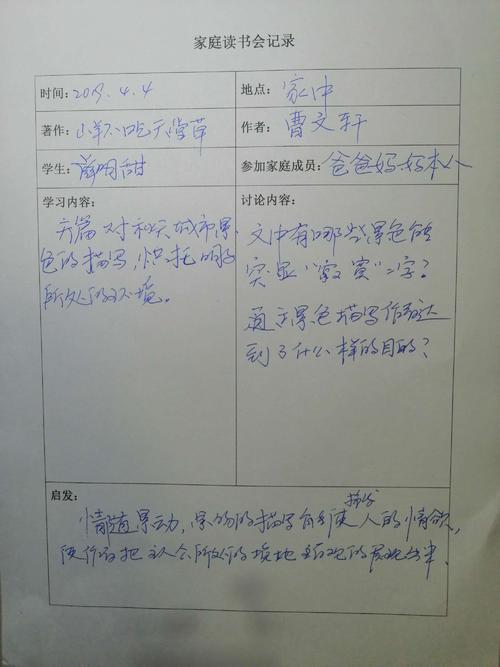 家庭读书会记录
时间：2019.4.4
地点：家中
著作：山羊不吃天堂草
作者：曹文轩
学生：薛明甜
参加家庭成员：爸爸妈妈本人
学习内容：
开篇对秋天城市景
色的描写，烘托明子
所处的环境。
讨论内容：
文中有哪些景色能
突显“寂寞”二字？
通过景色描写作者达
到了什么样的目的？
启发：
情随景动，景物的描写有利使人的情欲，
抒发
使作者把主人公所处的境地 客观的展现出来。